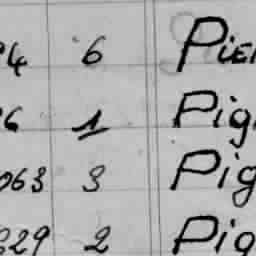 24 6 Pier
26 1 Pig
063 3 Pig
329 2 Pig